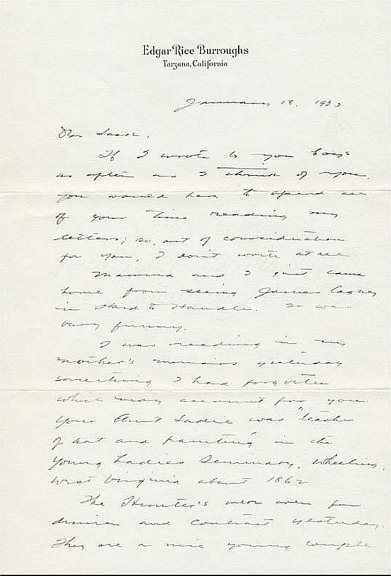 Edgar Rice Burroughs
Tarzana, California
January 18, 1933
Dear Jack,
If I wrote to you boys
as often as I think of you,
you would have to spend all
of your time reading my
letters; so, out of consideration
for you, I don't write at all.
Mamma and I just came
home from seeing James Cagney
in Hard to Handle. It was
very funny.
I was reading in my
mother's memoirs yesterday
something I had forgotten
which may account for you.
Your Aunt Sadie was "teacher
of art and painting" in the
Young Ladies Seminary, Wheeling,
West Virginia about 1862
The Hunter's were over for
dinner and contract yesterday.
They are a nice young couple.